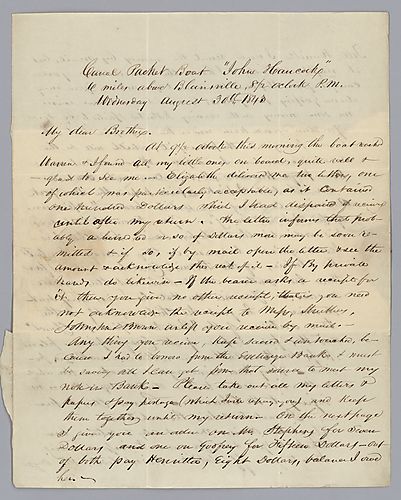 Canal Packet Boat "John Hancock"
10 miles above Blairsville, 8 1/2 o'clock P.M.
Wednesday August 30th 1848
My dear Brethrn,
At 9 1/2 o'clock this morning the boat reached
Warren & I found all my little ones on board, quite well &
glad to see me — Elizabeth delivered me two letters, one
of which was particularly acceptable, as it contained
one hundred Dollars which I had despaired of receiving
until after my return. The letter informs that prob-
ably a hundred or so of Dollars more may be soon re-
mitted & if so, if by mail open the letter & see the
amount & acknowledge the rect of it — If By private
hands do likewise — If the bearer asks a receipt for
it then you give no other receipt, you need
not acknowledge the receipt to Messrs,
Johnston & unless you receive by mail. —
Any thing you receive, keep secured & unbroached, be-
cause I had to borrow from the Exchange Bank & must
be saving all I can get from that source to meet my
note in Bank — Please take out all my letters &
papers & pay postage (which I will repay you) and keep
them together until my return. On the next page
I give you an order on Mr Stephens for Seven
Dollars and one on Godfrey for Fifteen Dollars — out
of both pay Henrietta, Eight Dollars, balance I owe
her —